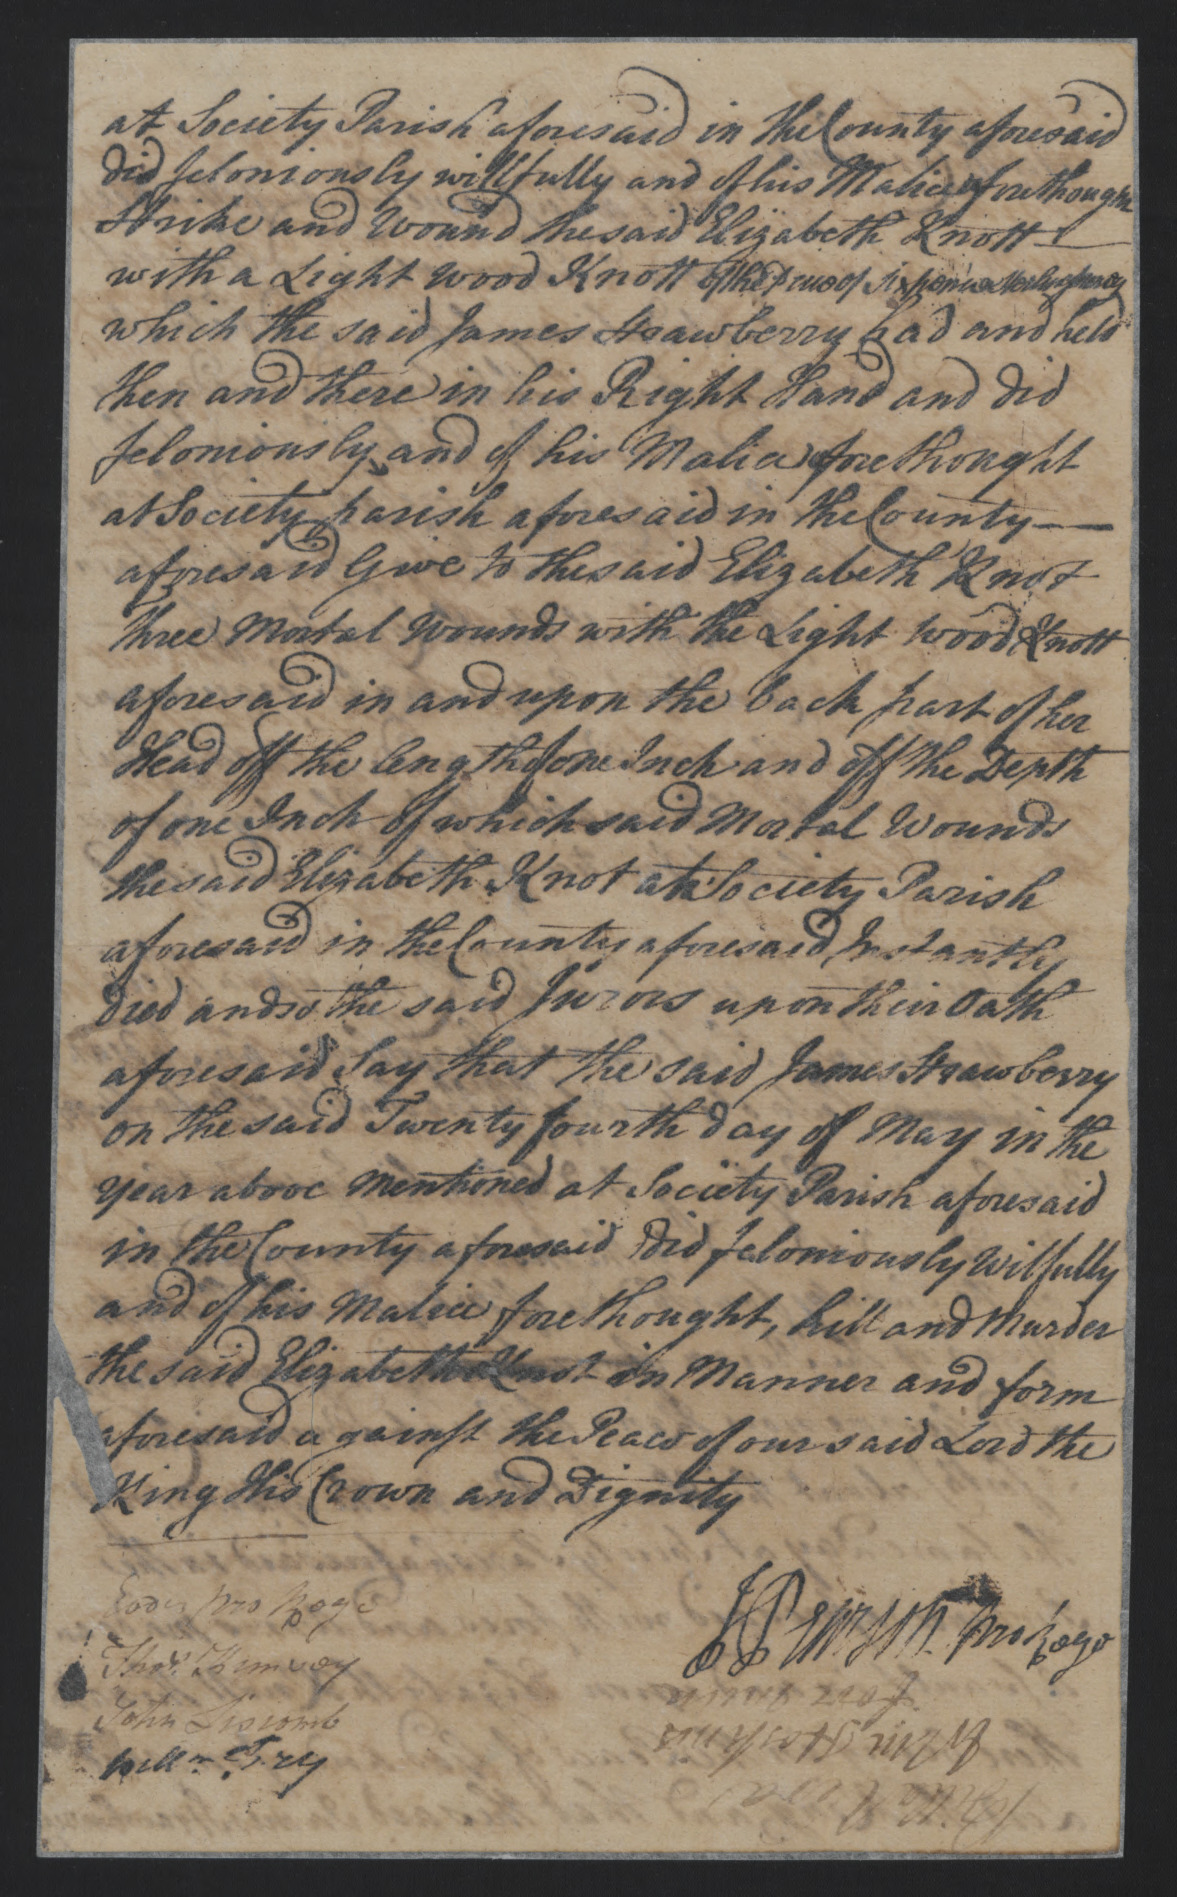 at Society Parish aforesaid in the County aforesaid
did feloniously willfully and of his Malice forethought
Strike and Wound the said Elizabeth Knott
with a Light Wood Knott of the price of six pence
which the said James Strawberry had and held
then and there in his Right Hand and did
feloniously and of his Malice forethought
at Society parish aforesaid in the County
aforesaid Give to the said Elizabeth Knot
Three Mortal Wounds with the Light Wood Knott
aforesaid in and upon the back part of her
Head off the length of one Inch and off the Depth
of one Inch Of which said Mortal Wounds
the said Elizabeth Knot at Society Parish
aforesaid in the County aforesaid Instantly
Died and so the said Jurors upon their Oath
aforesaid Say that the said James Strawberry
on the said Twenty fourth day of May in the
year above Mentioned at Society Parish aforesaid
in the County aforesaid did feloniously Wilfully
and of his Malice forethought, kill and Murder
the said Elizabeth Knot in Manner and form
aforesaid against the Peace of our said Lord the
King His Crown and Dignity
Pro Rege
Pro Rege
Thos.
John Liscomb
Willm